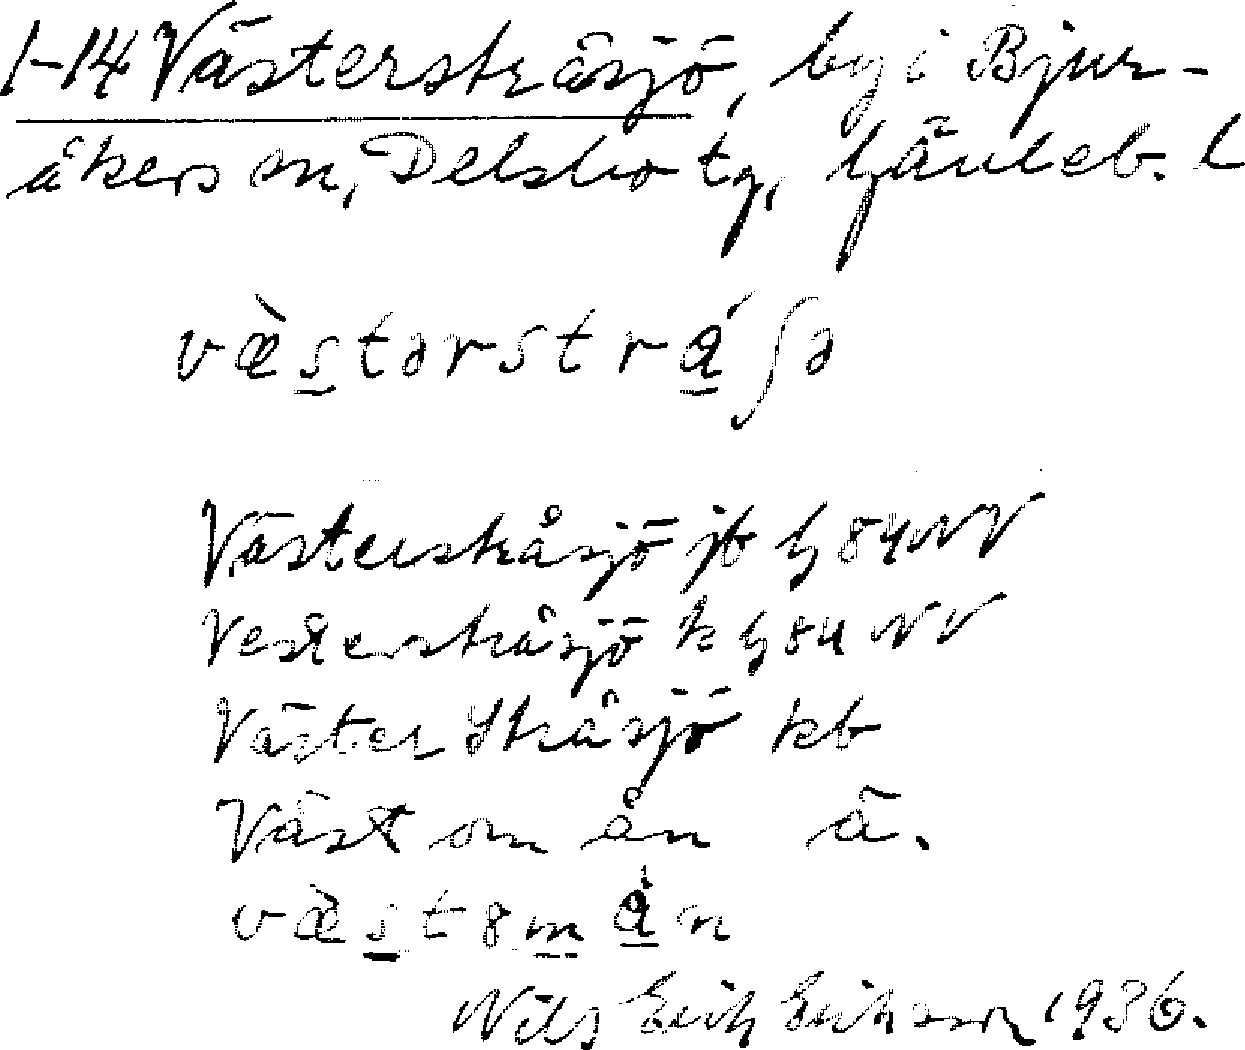 1-14 Västerstråsjö, by i Bjur-
åkers sn, Delsbo tg, Gävleb. l
væ̀stərstrǻʃə
Västerstråsjö jb hj 84 NV
Vesterstråsjö k hj 84 NV
Väster Stråsjö kb
Väst om ån ä.
væ̀st8må̀n
Nils Erik Eriksson 1936.